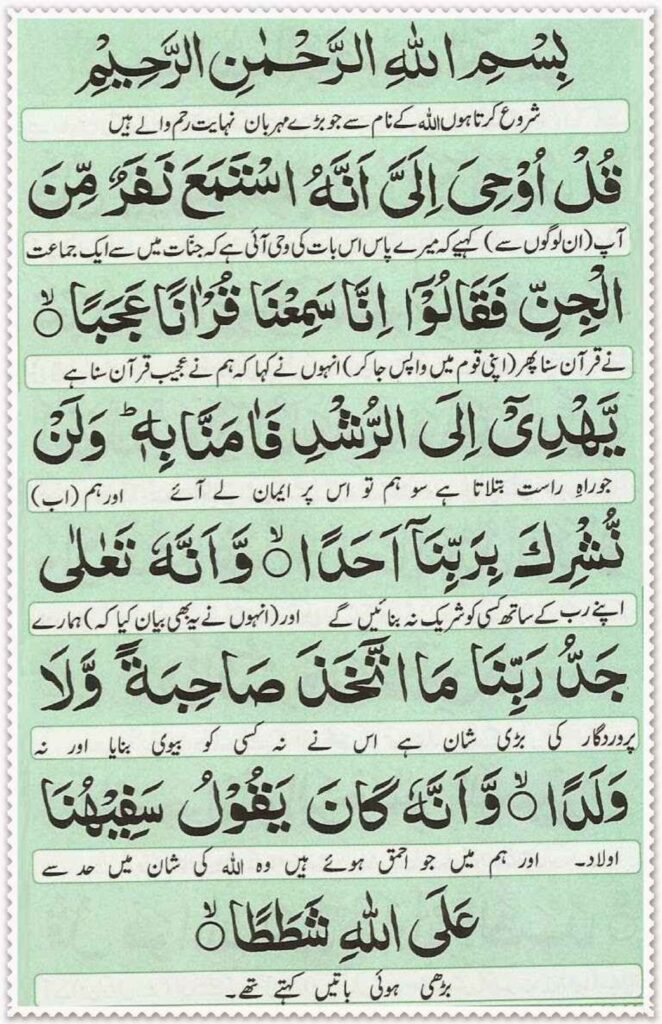 بِسْمِ اللهِ الرَّحْمٰنِ الرَّحِيْمِ
شروع کرتا ہوں اللہ کے نام سے جو بڑے مہربان نہایت رحم والے ہیں
قُلْ اُوْحِيَ اِلَيَّ اَنَّهُ اسْتَمَعَ نَفَرٌ مِّنَ
آپ (ان لوگوں سے) کہیے کہ میرے پاس اس بات کی وحی آئی ہے کہ جنّات میں سے ایک جماعت
الْجِنِّ فَقَالُوْٓا اِنَّا سَمِعْنَا قُرْاٰنًا عَجَبًا ۙ
نے قرآن سنا پھر (اپنی قوم میں واپس جا کر) انہوں نے کہا کہ ہم نے عجیب قرآن سنا ہے
يَّهْدِيْٓ اِلَى الرُّشْدِ فَاٰمَنَّا بِهٖ ؕ وَلَنْ
جو راہِ راست بتلاتا ہے سو ہم تو اس پر ایمان لے آئے اور ہم (اب)
نُّشْرِكَ بِرَبِّنَآ اَحَدًا ۙ وَّاَنَّهٗ تَعٰلٰى
اپنے رب کے ساتھ کسی کو شریک نہ بنائیں گے اور (انہوں نے یہ بھی بیان کیا کہ) ہمارے
جَدُّ رَبِّنَا مَا اتَّخَذَ صَاحِبَةً وَّلَا
پروردگار کی بڑی شان ہے اس نے نہ کسی کو بیوی بنایا اور نہ
وَلَدًا ۙ وَّاَنَّهٗ كَانَ يَقُوْلُ سَفِيْهُنَا
اولاد۔ اور ہم میں جو احمق ہوئے ہیں وہ اللہ کی شان میں حد سے
عَلَى اللهِ شَطَطًا ۙ
بڑھی ہوئی باتیں کہتے تھے۔